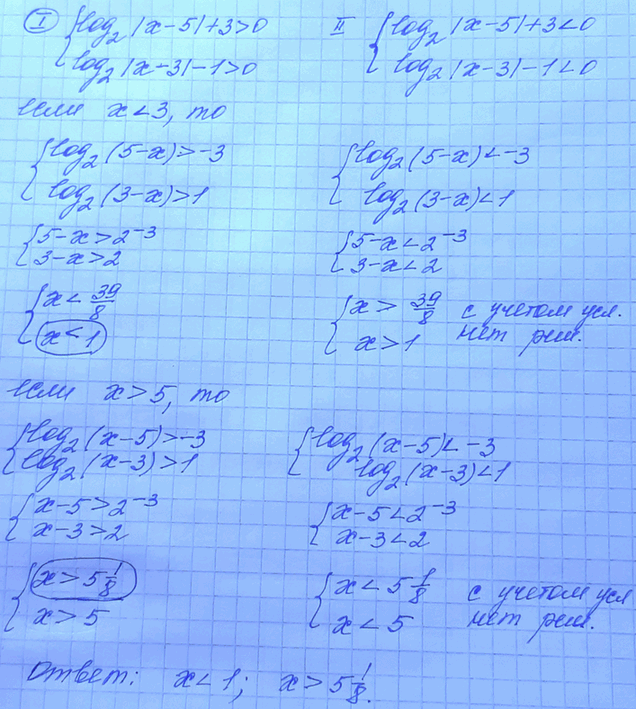 I { log₂|x-5|+3>0    II { log₂|x-5|+3<0
{ log₂|x-3|-1>0    { log₂|x-3|-1<0
если x<3, то
{ log₂(5-x)>-3    { log₂(5-x)<-3
{ log₂(3-x)>1    { log₂(3-x)<1
{ 5-x>2⁻³    { 5-x<2⁻³
{ 3-x>2    { 3-x<2
{ x< 39/8    { x> 39/8 с учетом усл.
{ x<1    { x>1 нет реш.
если x>5, то
{ log₂(x-5)>-3    { log₂(x-5)<-3
{ log₂(x-3)>1    { log₂(x-3)<1
{ x-5>2⁻³    { x-5<2⁻³
{ x-3>2    { x-3<2
{ x>5 1/8    { x<5 1/8 с учетом усл
{ x>5    { x<5 нет реш.
Ответ: x<1; x>5 1/8.